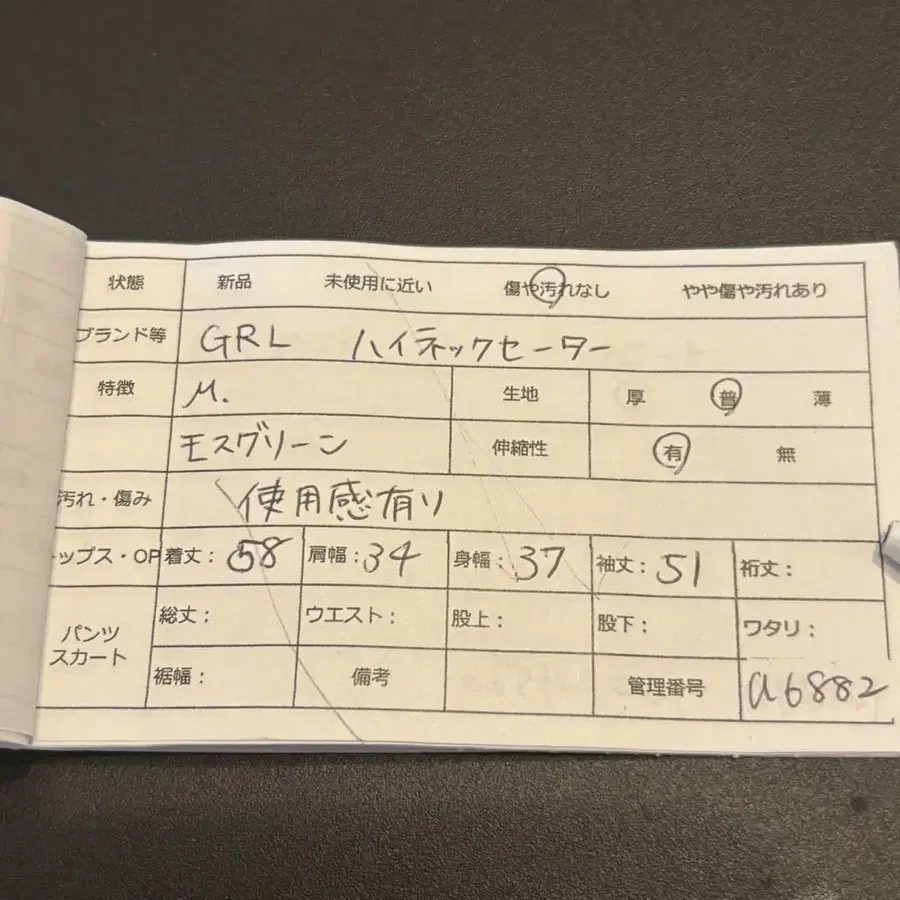 状態 新品 未使用に近い 傷や汚れなし やや傷や汚れあり
ブランド等 GRL ハイネックセーター
特徴 M. 生地 厚 普 薄
モスグリーン 伸縮性 有 無
汚れ・傷み 使用感有り
ップス・OP 着丈: 58 肩幅: 34 身幅: 37 袖丈: 51 裄丈:
パンツ スカート 総丈: ウエスト: 股上: 股下: ワタリ:
裾幅: 備考 管理番号 a6882